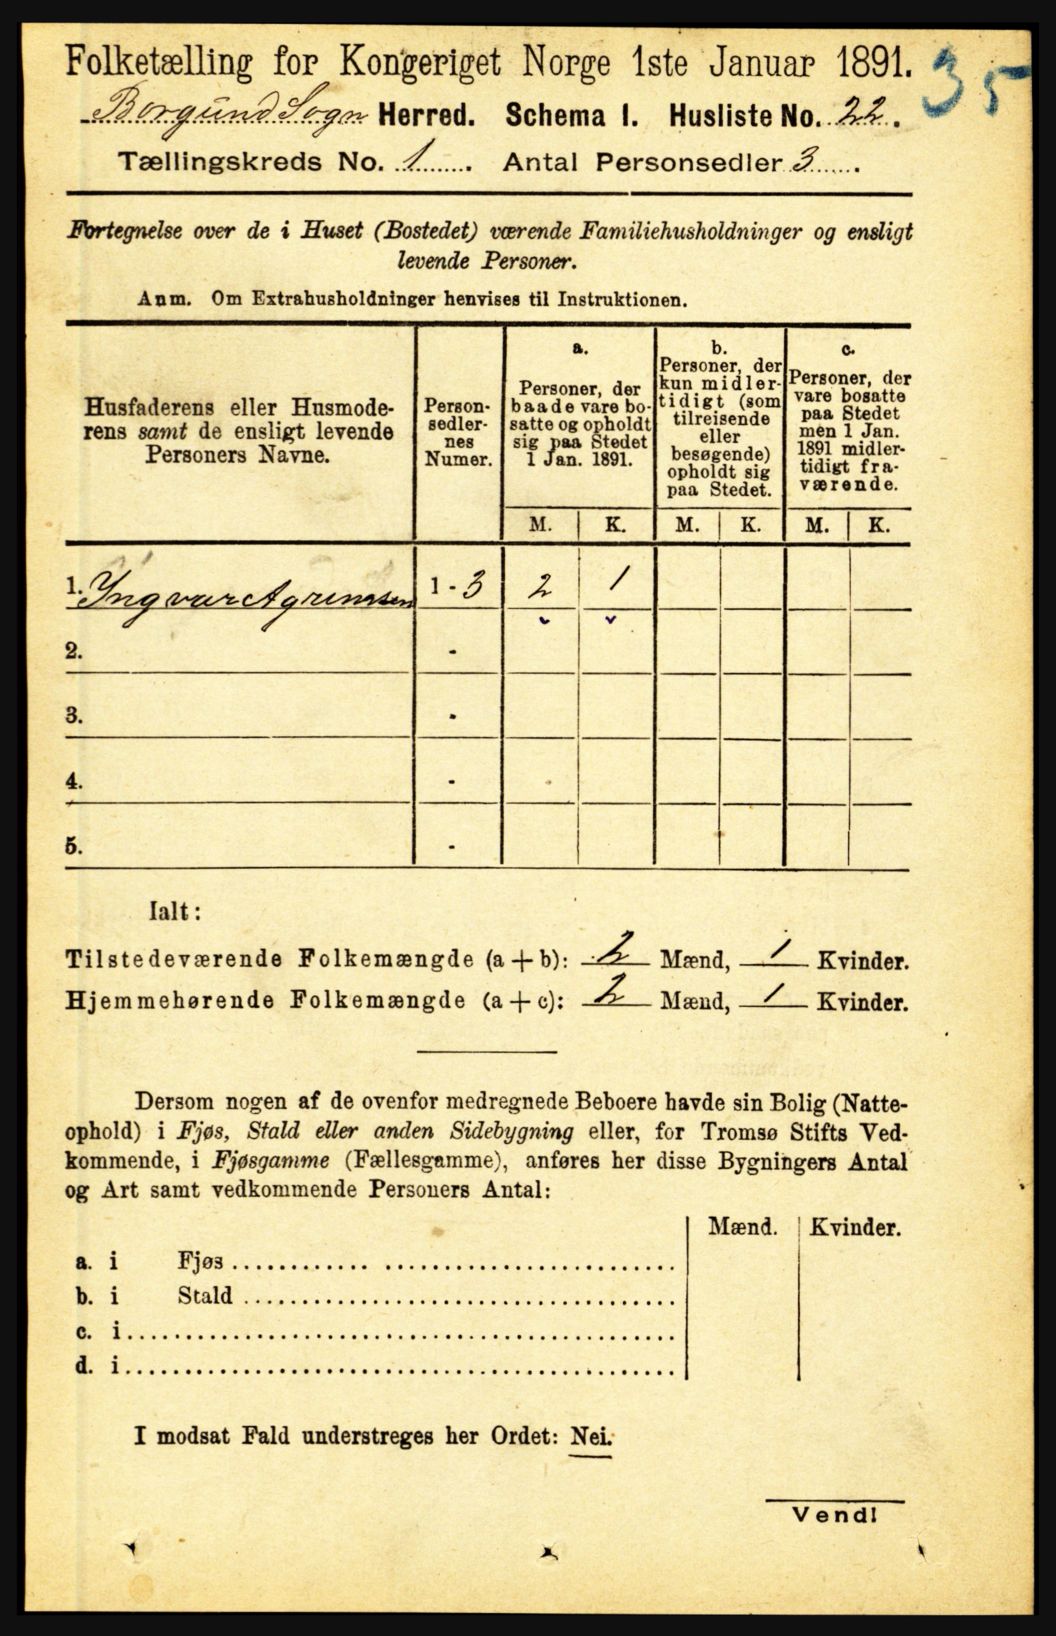 Folketælling for Kongeriget Norge 1ste Januar 1891.
35
Borgund Sogn Herred. Schema I. Husliste No. 22.
Tællingskreds No. 1. Antal Personsedler 3.
Fortegnelse over de i Huset (Bostedet) værende Familiehusholdninger og ensligt
levende Personer.
Anm. Om Extrahusholdninger henvises til Instruktionen.
Husfaderens eller Husmode-
rens samt de ensligt levende
Personers Navne.
Person-
sedler-
nes
Numer.
a.
Personer, der
baade vare bo-
satte og opholdt
sig paa Stedet
1 Jan. 1891.
b.
Personer, der
kun midler-
tidigt (som
tilreisende
eller
besøgende)
opholdt sig
paa Stedet.
c.
Personer, der
vare bosatte
paa Stedet
men 1 Jan.
1891 midler-
tidigt fra-
værende.
M. K. M. K. M. K.
1. Ingvar 1 - 3 2 1
2. -
3. -
4. -
5. -
Ialt:
Tilstedeværende Folkemængde (a + b): 2 Mænd, 1 Kvinder.
Hjemmehørende Folkemængde (a + c): 2 Mænd, 1 Kvinder.
Dersom nogen af de ovenfor medregnede Beboere havde sin Bolig (Natte-
ophold) i Fjøs, Stald eller anden Sidebygning eller, for Tromsø Stifts Ved-
kommende, i Fjøsgamme (Fællesgamme), anføres her disse Bygningers Antal
og Art samt vedkommende Personers Antal:
Mænd. Kvinder.
a. i Fjøs
b. i Stald
c. i
d. i
I modsat Fald understreges her Ordet: Nei.
Vend!